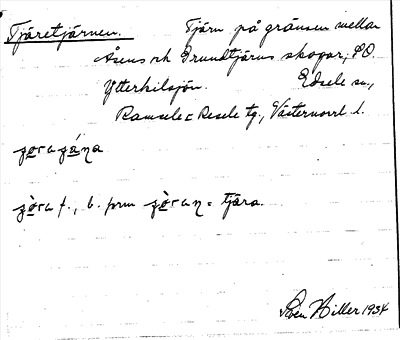 Tjäretjärnen. Tjärn på gränsen mellan
Åsens och Grundtjärns skogar, SO
Ytterkilsjön. Edsele sn,
Ramsele o Resele tg., Västernorrl. l.
f., b. form = tjära.
Sven Hiller 1934